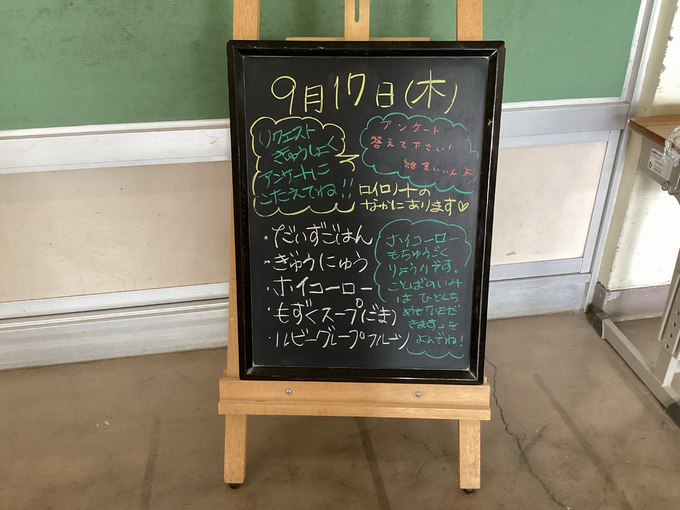 9月17日(木)
リクエスト
きゅうしょく
アンケートに
こたえてね!!
アンケート
答えて下さい!
給食いいんより
ロイロノートの
なかにあります♡
・だいずごはん
・ぎゅうにゅう
・ホイコーロー
・もずくスープ(ごま)
・ルビーグレープフルーツ
ホイコーロー
もちゅうごく
りょうりです。
ことばのいみ
は「ひとくち
めせていただ
きます」を
よんでね!